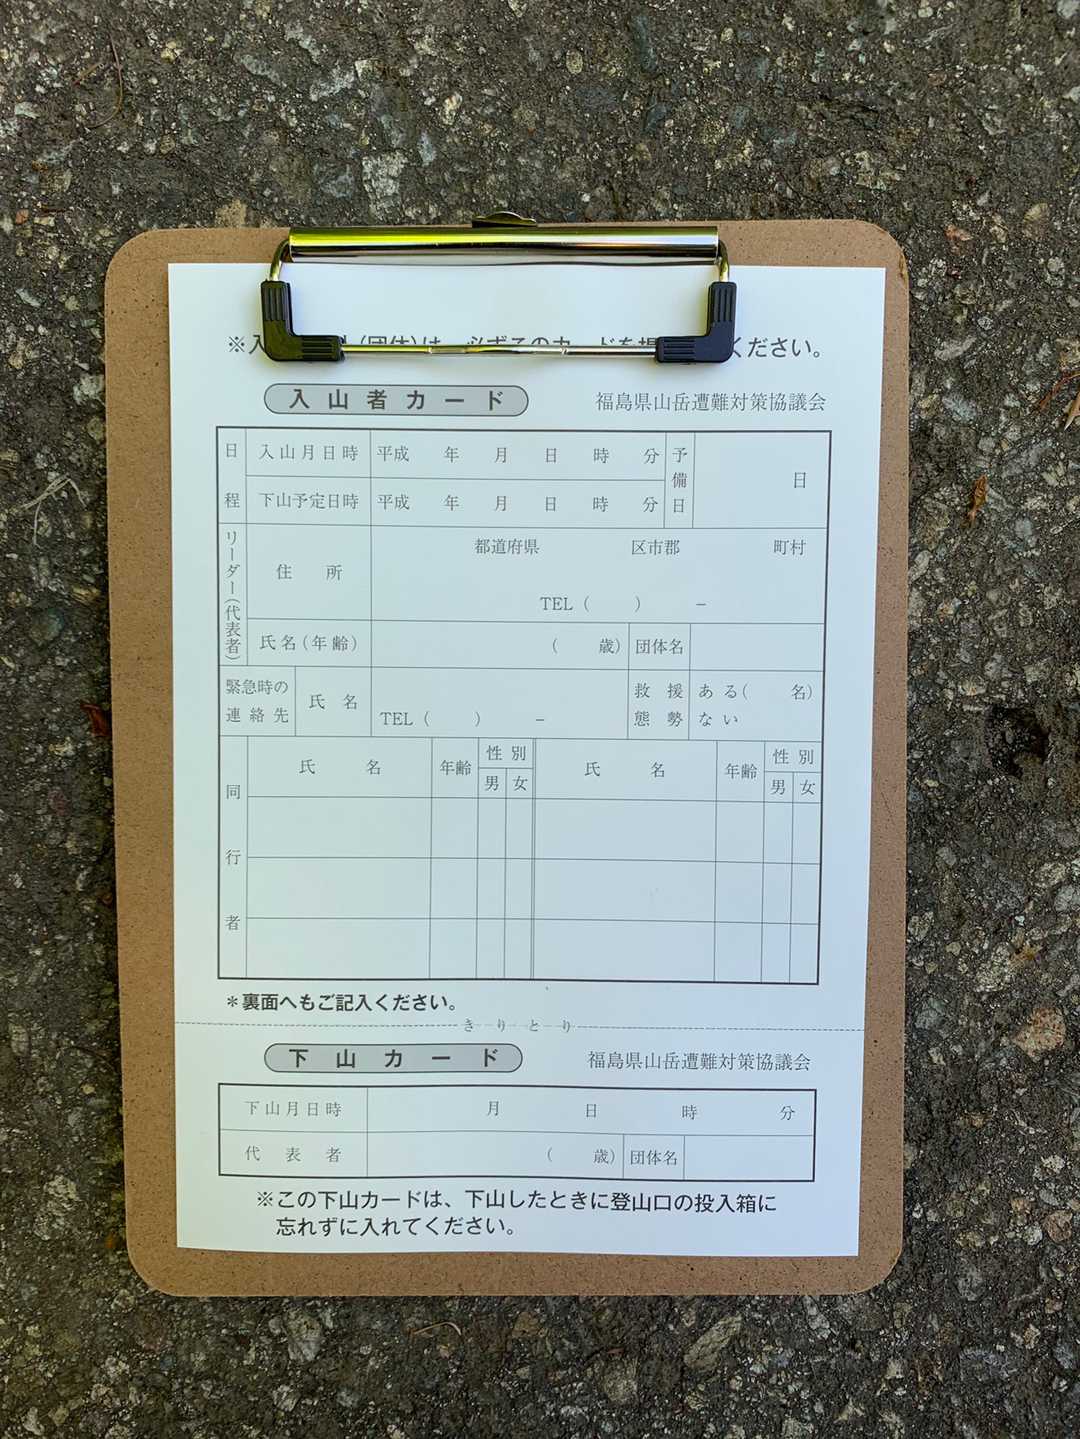 ※入 (団体)は、必ずこのカードを提 ください。
入山者カード 福島県山岳遭難対策協議会
日程 入山月日時 平成 年 月 日 時 分 予備日 日
下山予定日時 平成 年 月 日 時 分
リーダー(代表者) 住所 都道府県 区市郡 町村
TEL ( ) −
氏名(年齢) ( 歳) 団体名
緊急時の連絡先 氏名 TEL ( ) − 救援態勢 ある( 名)
ない
同行者 氏名 年齢 性別 氏名 年齢 性別
男 女 男 女
*裏面へもご記入ください。
きりとり
下山カード 福島県山岳遭難対策協議会
下山月日時 月 日 時 分
代表者 ( 歳) 団体名
※この下山カードは、下山したときに登山口の投入箱に
忘れずに入れてください。